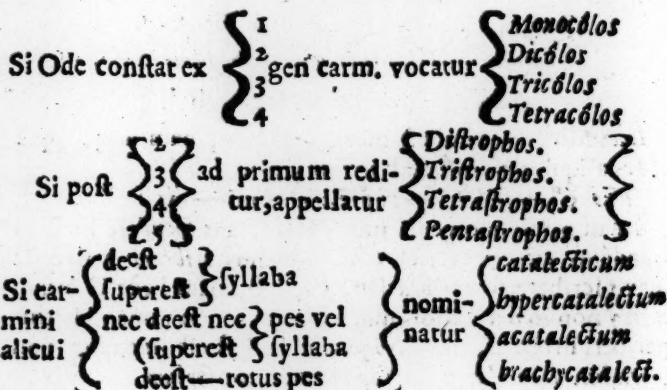 Si Ode conſtat ex { 1 2 3 4 gen carm. vocatur { Monocôlos
Dicôlos
Tricôlos
Tetracôlos
Si poſt { 2 3 4 5 } ad primum redi-
tur, appellatur { Diſtrophos.
Triſtrophos.
Tetraſtrophos.
Pentaſtrophos. }
Si car-
mini
alicui { deeſt
ſupereſt } ſyllaba
nec deeſt nec } pes vel
(ſupereſt } ſyllaba
deeſt—totus pes } nomi-
natur { catalecticum
hypercatalectum
acatalectum
brachycatalect.